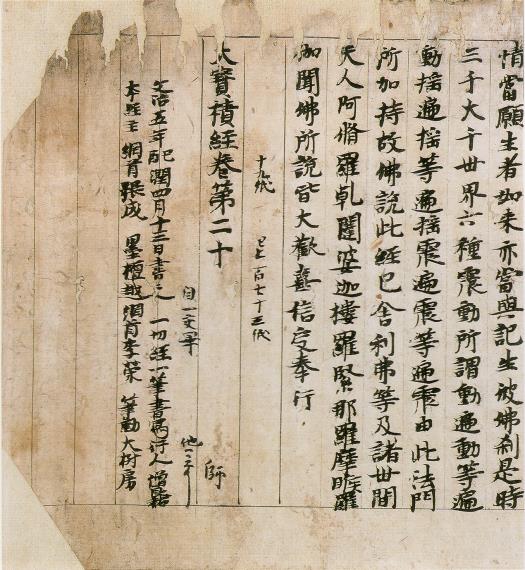 情當願生者如來亦當與記生彼佛刹是時
三千大千世界六種震動所謂動遍動等遍
動揺遍揺等遍揺震遍震等遍震由此法門
所加持故佛說此經已舍利弗等及諸世間
天人阿脩羅乹闥婆迦樓羅緊那羅摩睺羅
伽聞佛所說皆大歡喜信受奉行
十九紙 已上百七十五紙
大寶積經卷第二十
師
自一交畢 他一交了
文治五年己酉潤四月十三日書之 一切經一筆書寫行人僧
本經主綱首張成 墨檀越綱首李榮 筆勸大樹房